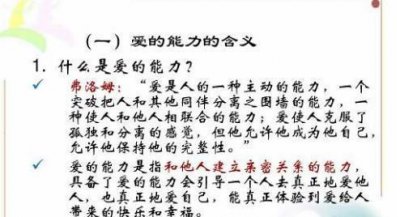 （一）爱的能力的含义
1. 什么是爱的能力？
✓ 弗洛姆：“爱是人的一种主动的能力，一个
突破把人和其他同伴分离之围墙的能力，一
种使人和他人相联合的能力；爱使人克服了
孤独和分离的感觉，但他允许他成为他自己，
允许他保持他的完整性。”
✓ 爱的能力是指和他人建立亲密关系的能力，
具备了爱的能力会引导一个人去真正地爱他
人，也真正地爱自己，能真正体验到爱给人
带来的快乐和幸福。